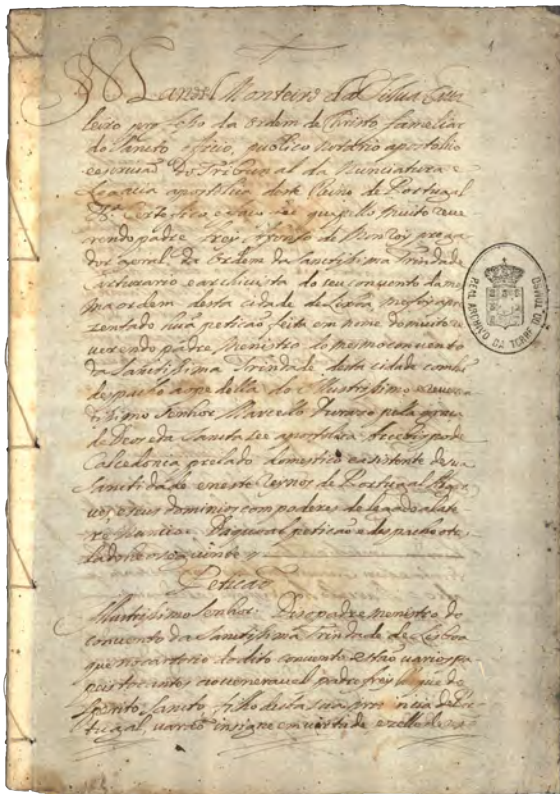 1
Manoel Monteiro da Silva Caval
leiro professo da ordem de Christo familiar
do Sancto officio, publico Notario apostolico
e escrivaõ do Tribunal da Nunciatura e
Legacia apostolica deste Reino de Portugal
Certefico e faço que pello muito reve
rendo padre frey de prega
dor geral da Ordem da Sanctissima Trindade
Cartorario e archivista do seu convento da mes
ma ordem desta cidade de Lixboa, me foi apre
zentado huã petiçaõ feita em nome do muito re
verendo padre Menistro do mesmo convento
da Sanctissima Trindade desta cidade com hũ
despacho ao pe della do Illustrissimo e reveren
dissimo Senhor Marcello Durazo pella graça
de Deos e da Sancta See apostolica Arcebispo de
Calcedonia prelado domestico e asistente de sua
Sanctidade e nestes Reinos de Portugal Algar
ves, e seus dominios com poderes de legado a late
re Nuncio. Da qual petiçaõ e despacho o te
Petiçaõ
Illustrissimo Senhor. Diz o padre Menistro do
convento da Sanctissima Trindade de Lisboa
que no cartorio do dito convento estaõ varios pa
peis tocantes ao veneravel padre frey de
Spirito Sancto, filho desta sua provincia de Por
tugal, varaõ insigne em virtude e zello de
REAL ARCHIVO DA TORRE DO TOMBO